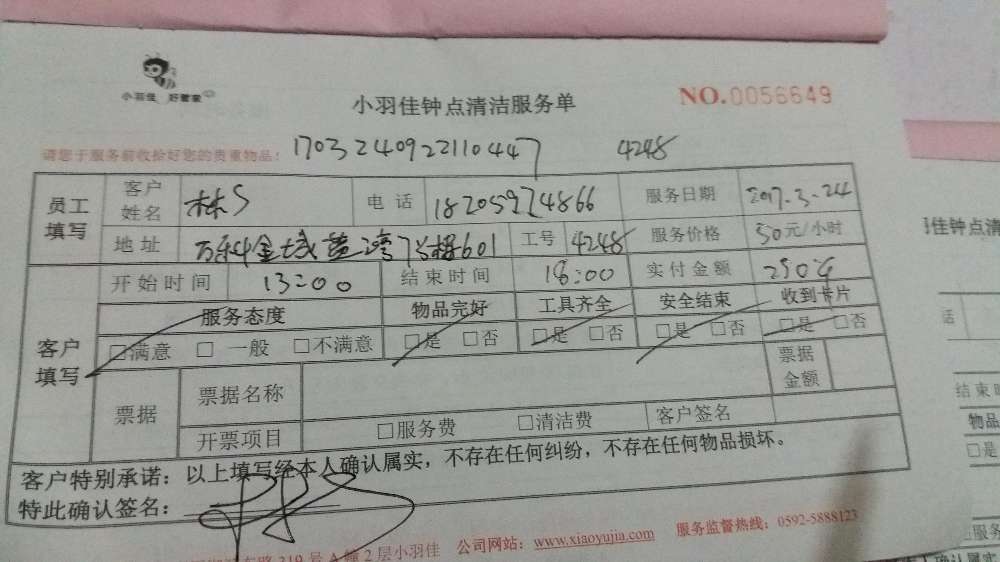 小羽佳 好管家
小羽佳钟点清洁服务单
NO.0056649
请您于服务前收拾好您的贵重物品:
1703240922110447 4248
员工填写 客户姓名 林S 电话 18205974866 服务日期 2017.3.24
地址 7号楼601 工号 4248 服务价格 50元/小时
客户填写 开始时间 13:00 结束时间 18:00 实付金额 250元
服务态度 物品完好 工具齐全 安全结束 收到卡片
□满意 □一般 □不满意 □是 □否 □是 □否 □是 □否 □是 □否
票据 票据名称 票据金额
开票项目 □服务费 □清洁费 客户签名
客户特别承诺:以上填写经本人确认属实,不存在任何纠纷,不存在任何物品损坏。
特此确认签名:
东路319号A幢2层小羽佳 公司网站:www.xiaoyujia.com 服务监督热线:0592-5888123
点清
话
结束时
物品
□是